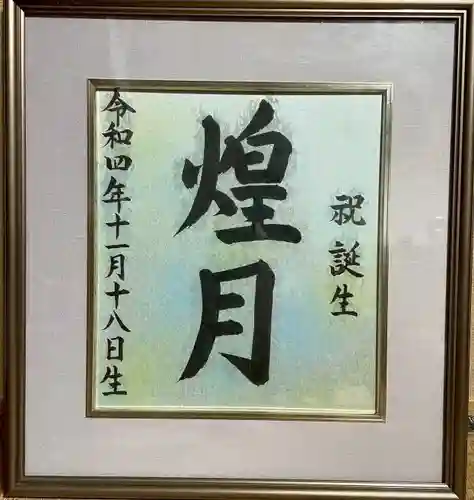 祝誕生
煌月
令和四年十一月十八日生